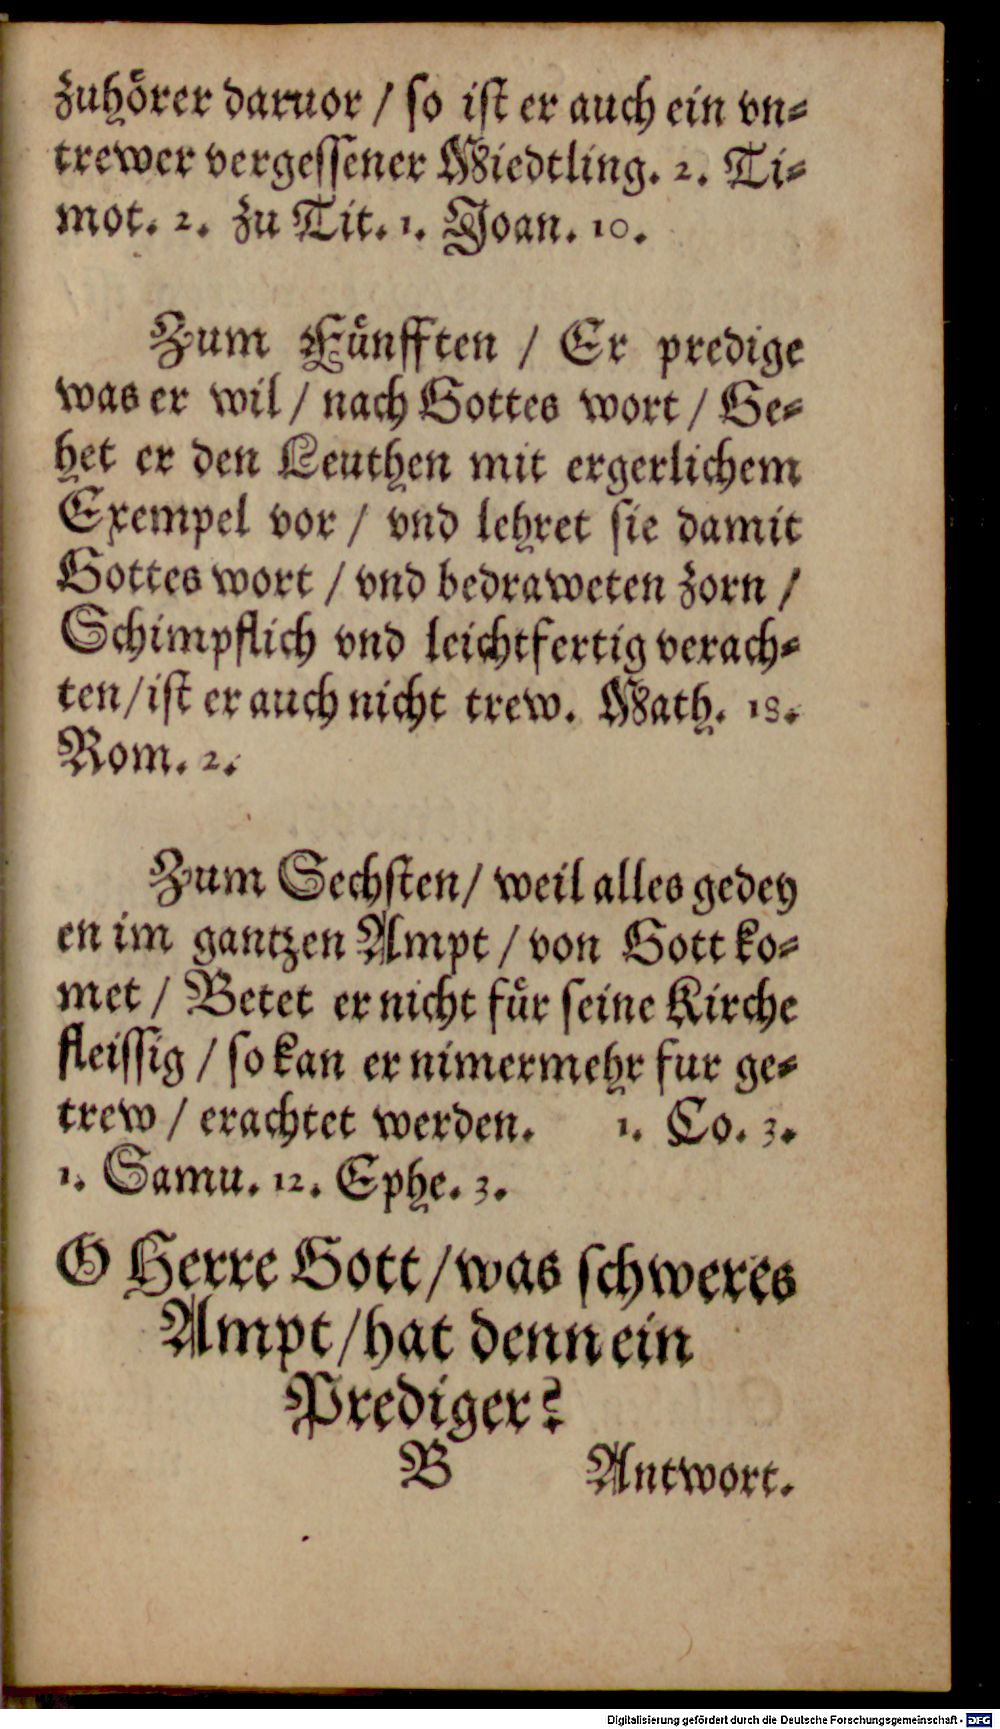 zuhörer daruor / so ist er auch ein vn⸗
trewer vergessener Miedtling. 2. Ti⸗
mot. 2. zu Tit. 1. Joan. 10.
Zum Fünfften / Er predige
was er wil / nach Gottes wort / Ge⸗
het er den Leuthen mit ergerlichem
Exempel vor / vnd lehret sie damit
Gottes wort / vnd bedraweten zorn /
Schimpflich vnd leichtfertig verach⸗
ten / ist er auch nicht trew. Math. 18.
Rom. 2.
Zum Sechsten / weil alles gedey
en im gantzen Ampt / von Gott ko⸗
met / Betet er nicht für seine Kirche
fleissig / so kan er nimermehr fur ge⸗
trew / erachtet werden. 1. Co. 3.
1. Samu. 12. Ephe. 3.
O Herre Gott / was schweres
Ampt / hat denn ein
Prediger?
B Antwort.
Digitalisierung gefördert durch die Deutsche Forschungsgemeinschaft - DFG